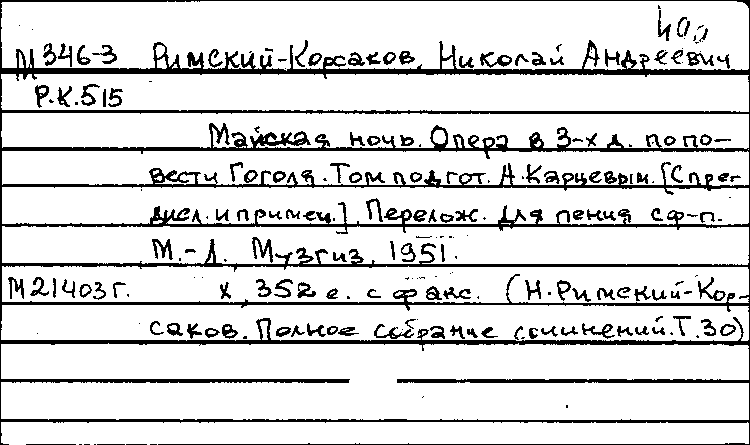 400
М 346-3 Римский-Корсаков, Николай Андреевич
Р.К.515
Майская ночь. Опера в 3-х д. по по-
вести Гоголя. Том подгот. А. Карцевым. [С пре-
дисл. и примеч.]. Перелож. для пения с ф-п.
М.-Л., Музгиз, 1951.
М21403г. X, 352 с. с факс. (Н. Римский-Кор-
саков. Полное собрание сочинений. Т. 30)